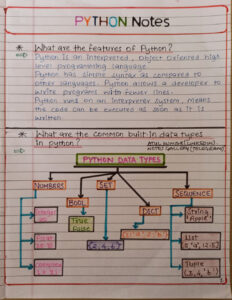 PYTHON Notes
* What are the features of Python?
⇒ Python is an Interpreted, Object Oriented high
level programming language.
Python has simple syntax as compared to
other languages. Python allows a developer to
write programs with fewer lines.
Python runs on an Interpreter system, means
the code can be executed as soon as it is
written
* What are the common built-in data types
in python?
ATUL KUMAR (LINKEDIN)
NOTES GALLERY (TELEGRAM)
PYTHON DATA TYPES
NUMBERS
SET
SEQUENCE
BOOL
DICT
True
False
String
'Apple'
List
Tuple